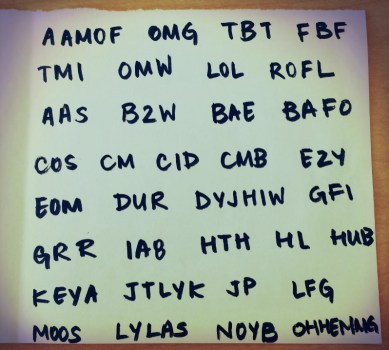 AAMOF OMG TBT FBF
TMI OMW LOL ROFL
AAS B2W BAE BAFO
COS CM CID CMB EZY
EOM DUR DYJHIW GFI
GRR IAB HTH HL HUB
KEYA JTLYK JP LFG
MOOS LYLAS NOYB OHHEMMG